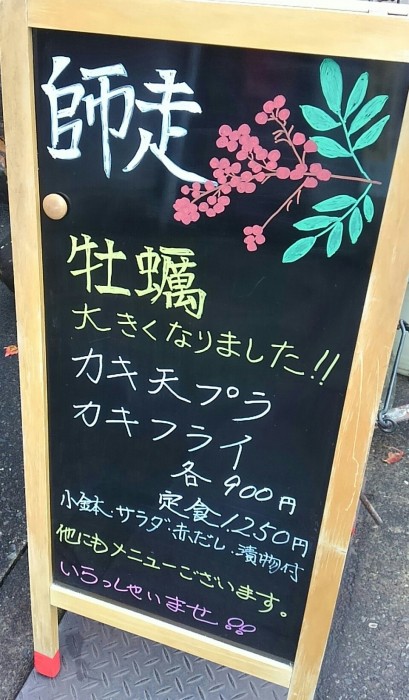 師走
牡蠣
大きくなりました!!
カキ天プラ
カキフライ
各900円
定食1250円
小鉢.サラダ.赤だし.漬物付
他にもメニューございます。
いらっしゃいませ